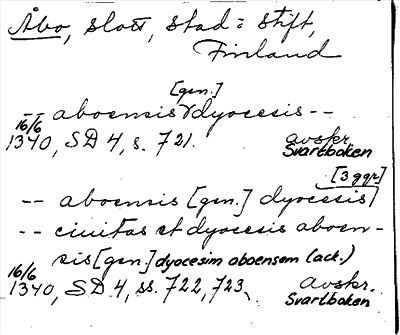 Åbo, slott, stad = stift,
Finland
[gen.]
-- aboensis dyocesis --
16/6
1340, SD 4, s. 721. avskr.
Svartboken
[3 ggr]
-- aboensis [gen.] dyocesis
-- ciuitas et dyocesis aboen-
sis [gen.] dyocesim aboensem (ack.)
16/6
1340, SD 4, ss. 722, 723, avskr.
Svartboken